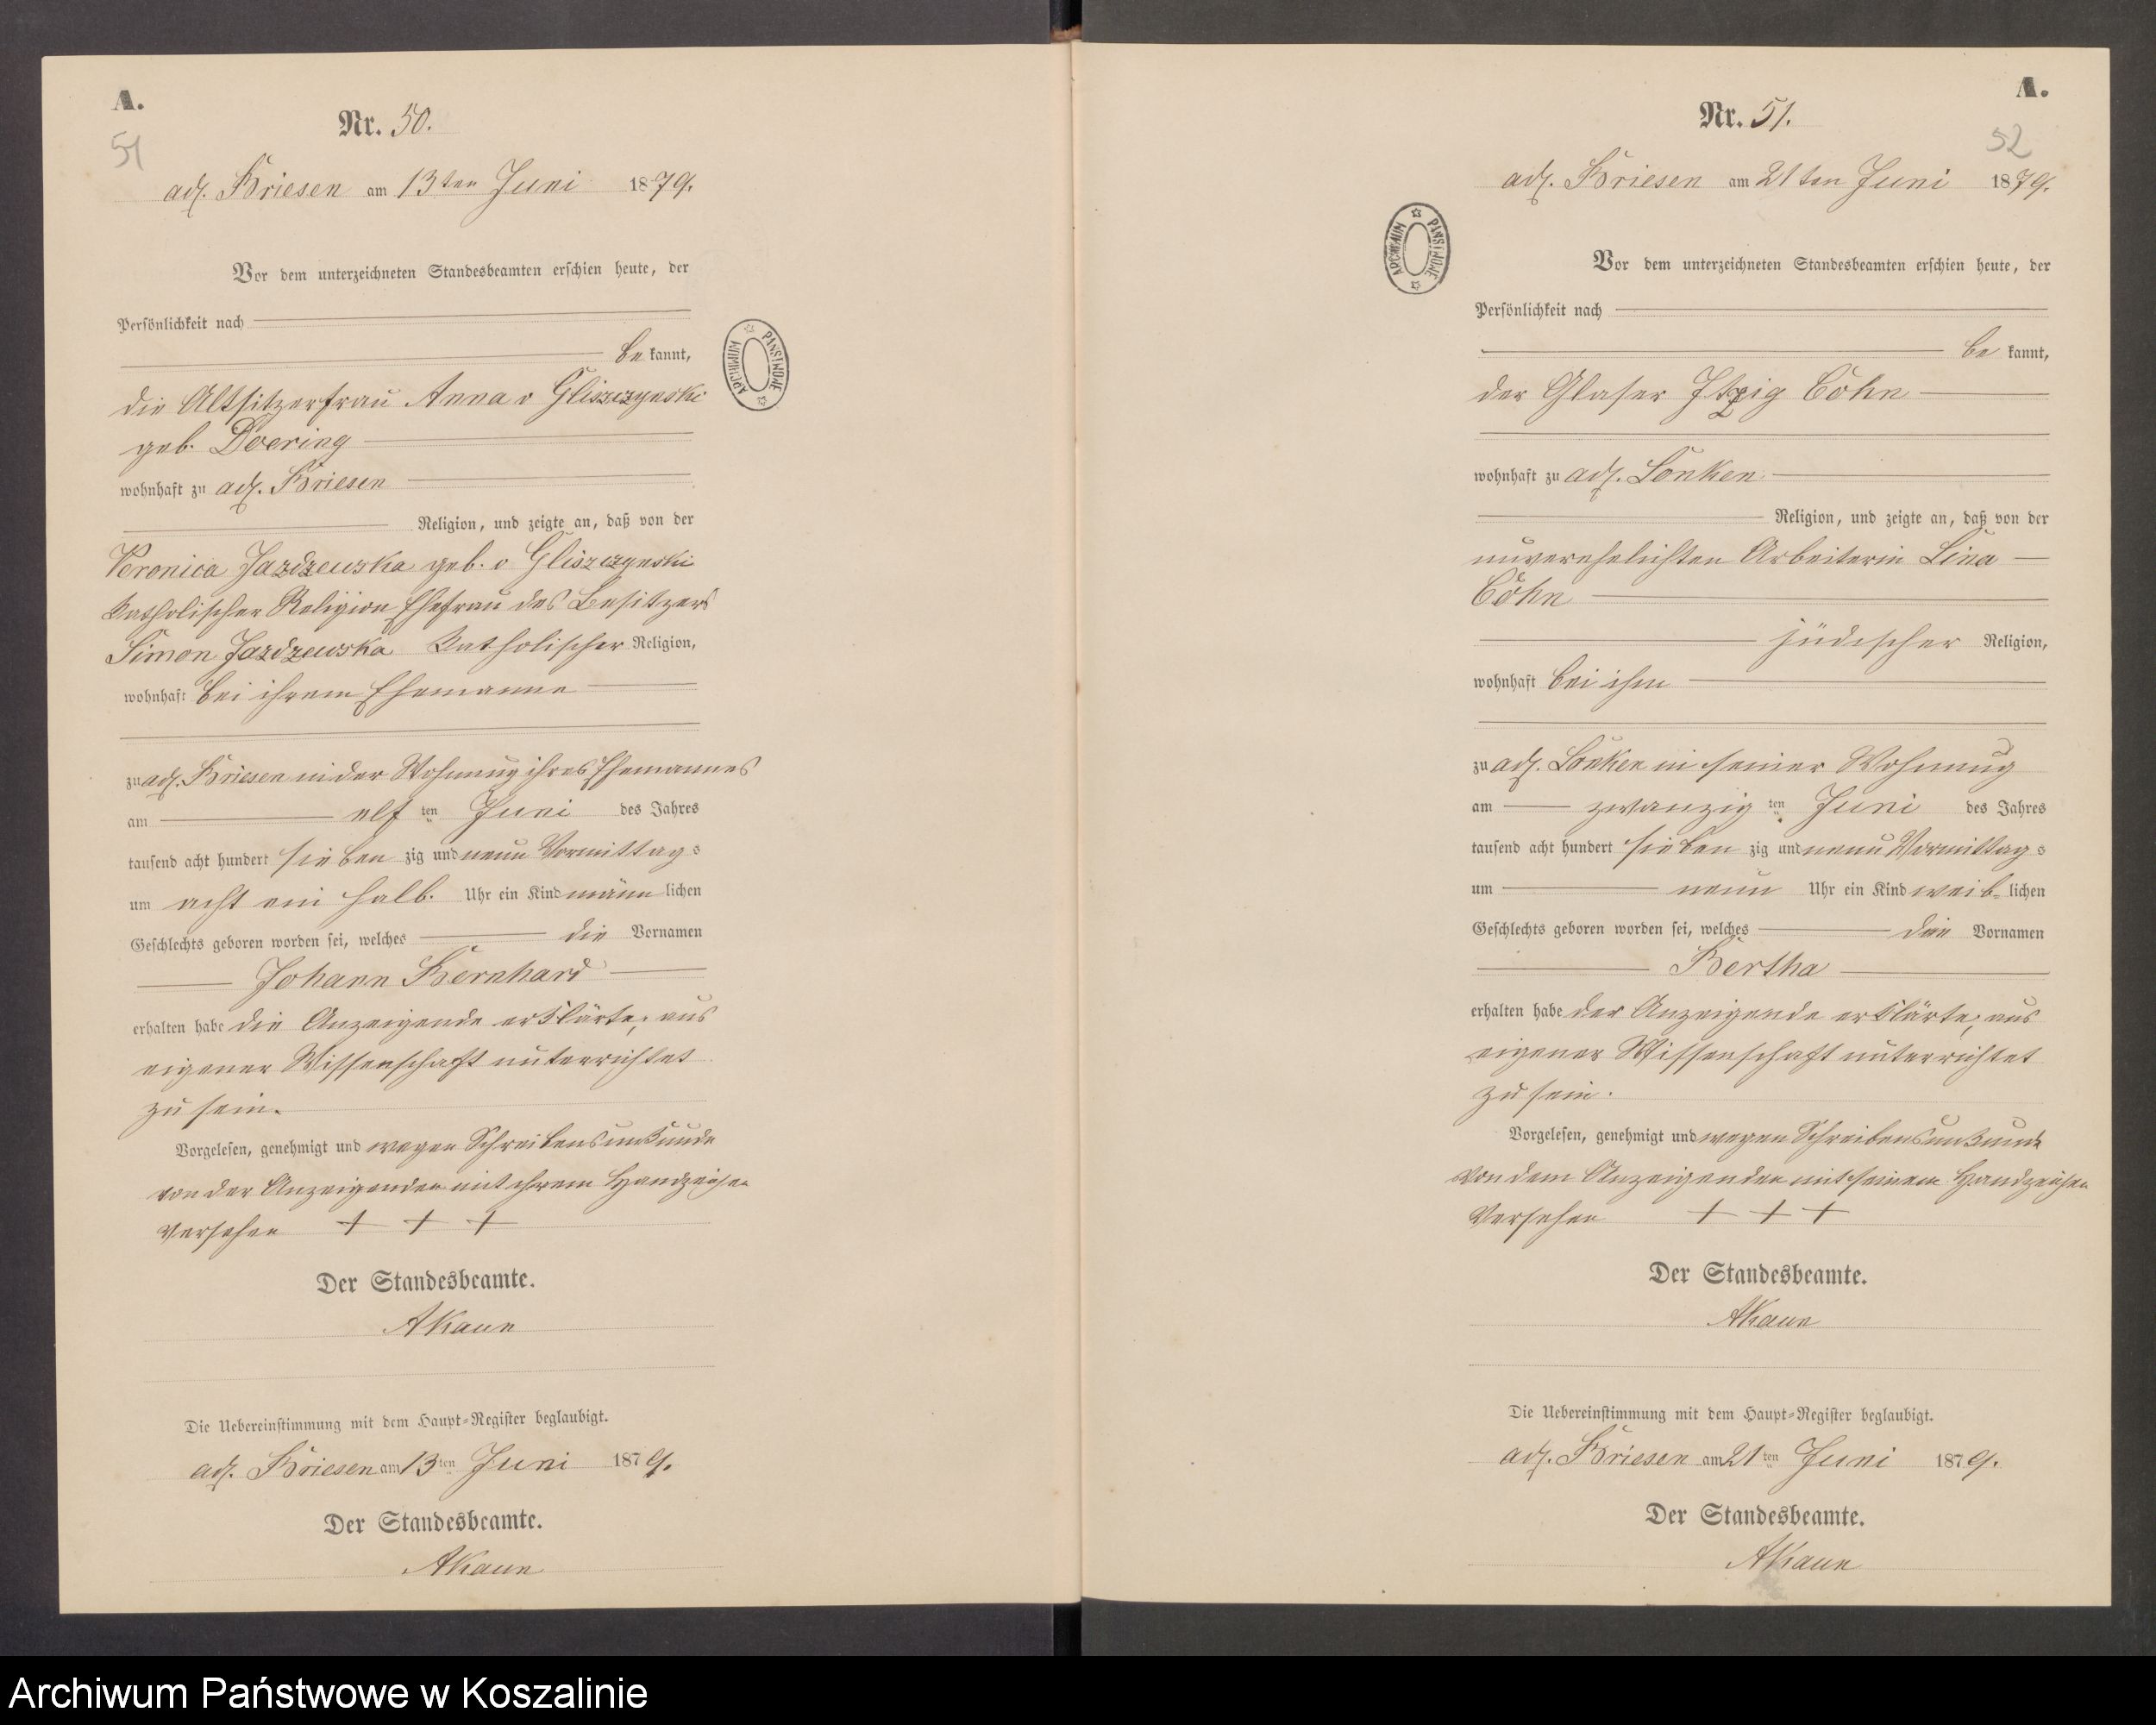 A.
51
Nr. 50.
adl. Briesen am 13ten Juni 1879.
Vor dem unterzeichneten Standesbeamten erschien heute, der
Persönlichkeit nach
be kannt,
die Altsitzerfrau Anna v Gliszczynski
geb. Doering
wohnhaft zu adl. Briesen
Religion, und zeigte an, daß von der
Veronica Jazdzewska geb. v Gliszczynski
katholischer Religion Ehefrau des Besitzers
Simon Jazdzewska katholischer Religion,
wohnhaft bei ihrem Ehemanne
zu adl. Briesen in der Wohnung ihres Ehemannes
am elf ten Juni des Jahres
tausend acht hundert sieben zig und neun Vormittags
um acht ein halb. Uhr ein Kind männ lichen
Geschlechts geboren worden sei, welches die Vornamen
Johann Bernhard
erhalten habe die Anzeigende erklärte, aus
eigener Wissenschaft unterrichtet
zu sein.
Vorgelesen, genehmigt und wegen Schreibensunkunde
von der Anzeigenden mit ihrem Handzeichen
versehen + + +
Der Standesbeamte.
AKaun
Die Uebereinstimmung mit dem Haupt-Register beglaubigt.
adl. Briesen am 13ten Juni 1879.
Der Standesbeamte.
AKaun
ARCHIWUM PAŃSTWOWE
A.
52
Nr. 51.
adl. Briesen am 21ten Juni 1879.
Vor dem unterzeichneten Standesbeamten erschien heute, der
Persönlichkeit nach
be kannt,
der Glaser Itzig Cohn
wohnhaft zu adl. Lonken
Religion, und zeigte an, daß von der
unverehelichten Arbeiterin Lina
Cohn
jüdischer Religion,
wohnhaft bei ihm
zu adl. Lonken in seiner Wohnung
am zwanzig ten Juni des Jahres
tausend acht hundert sieben zig und neun Vormittags
um neun Uhr ein Kind weib- lichen
Geschlechts geboren worden sei, welches den Vornamen
Bertha
erhalten habe der Anzeigende erklärte, aus
eigener Wissenschaft unterrichtet
zu sein.
Vorgelesen, genehmigt und wegen Schreibensunkunde
von dem Anzeigenden mit seinem Handzeichen
versehen + + +
Der Standesbeamte.
AKaun
Die Uebereinstimmung mit dem Haupt-Register beglaubigt.
adl. Briesen am 21ten Juni 1879.
Der Standesbeamte.
AKaun
ARCHIWUM PAŃSTWOWE
Archiwum Państwowe w Koszalinie